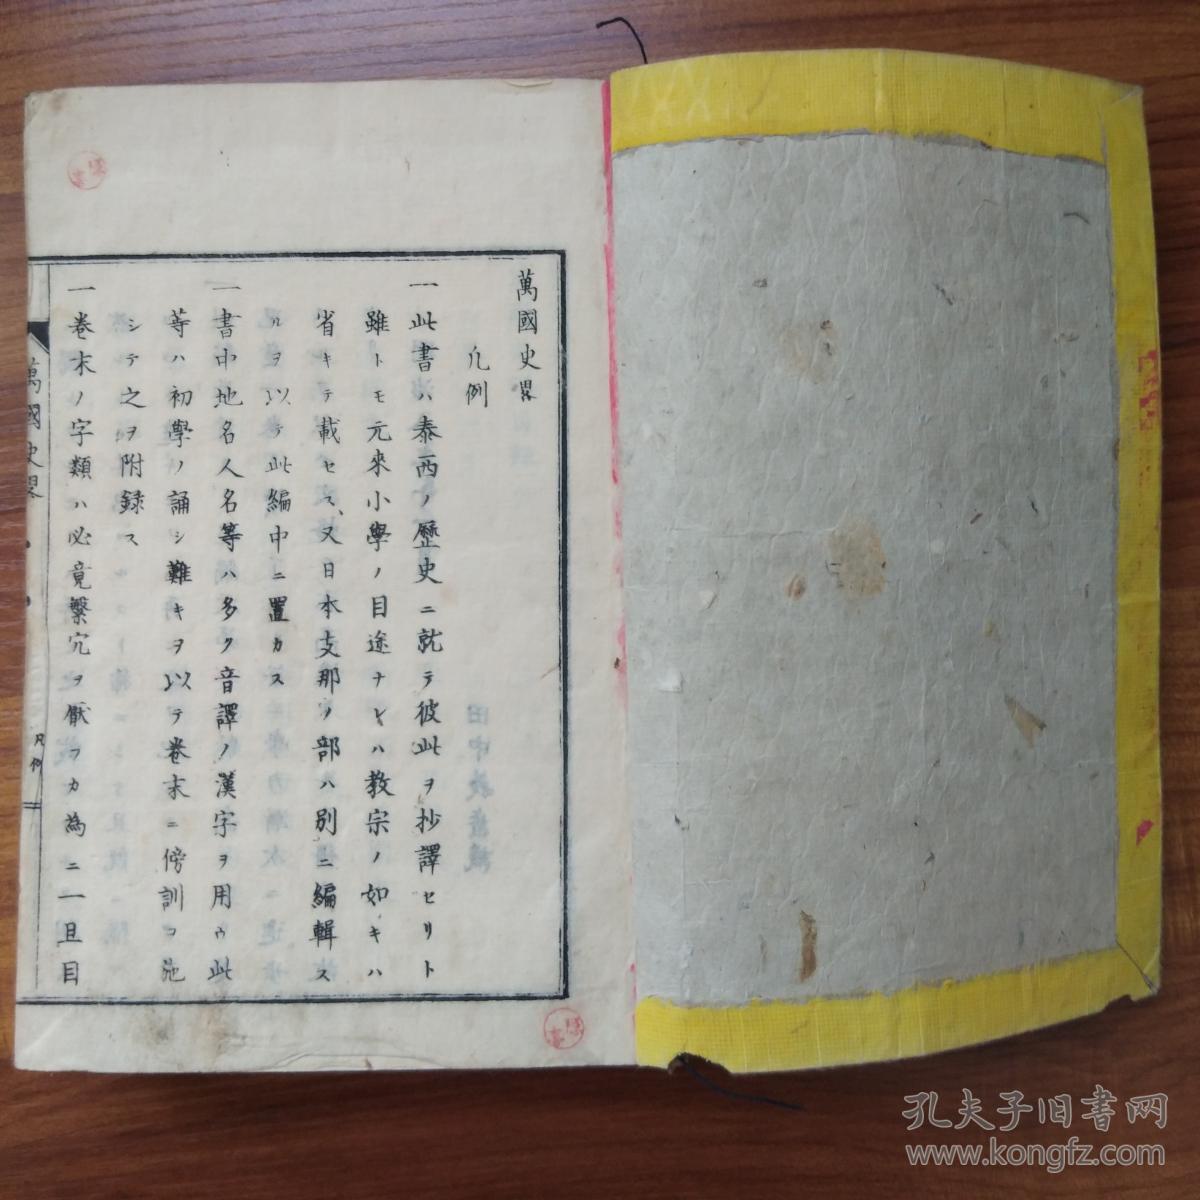 萬國史畧
凡例
一此書ハ泰西ノ歷史ニ就テ彼此ヲ抄譯セリト
雖トモ元來小學ノ目途ナレハ教宗ノ如キハ
省キテ載セス又日本支那ノ部ハ別ニ編輯ス
ルヲ以テ此編中ニ置カス
一書中地名人名等ハ多ク音譯ノ漢字ヲ用ウ此
等ハ初學ノ誦シ難キヲ以テ卷末ニ傍訓ヲ施
シテ之ヲ附録ス
一卷末ノ字類ハ必竟繫冗ヲ厭フカ為ニ一旦目
萬國史畧
凡例
孔夫子旧书网
www.kongfz.com